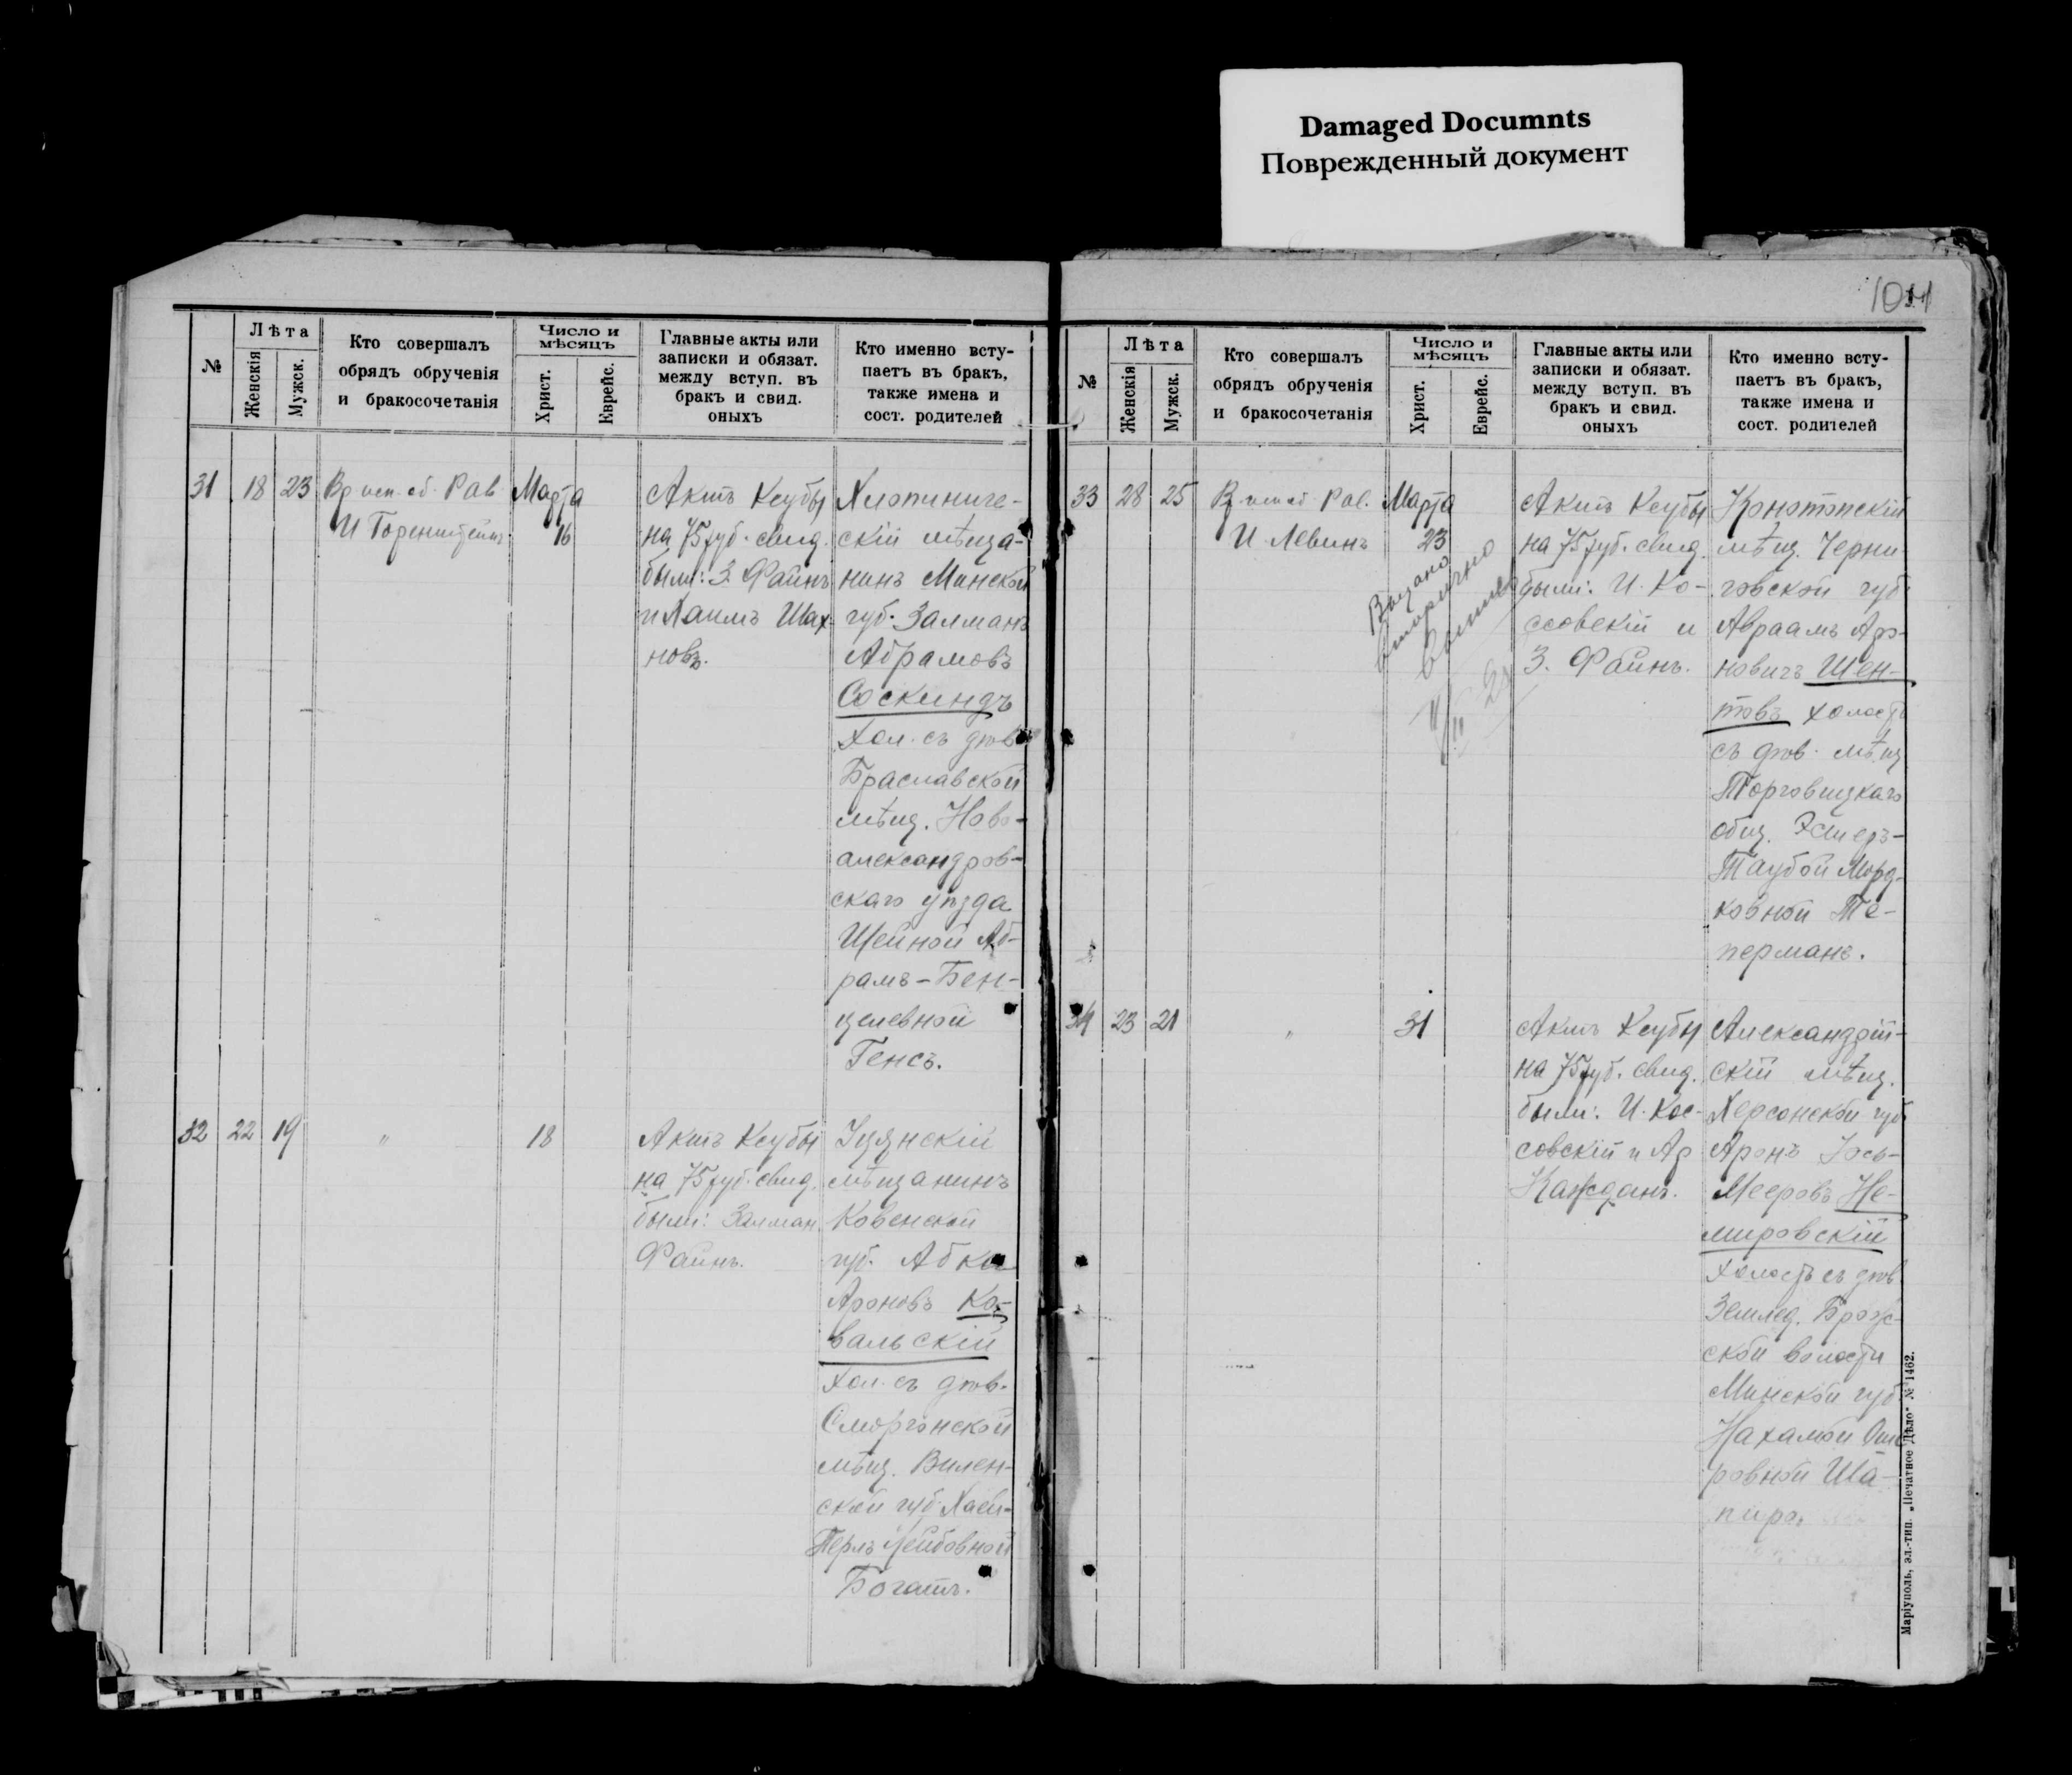 Damaged Documnts
Поврежденный документ
№
Лѣта
Женскія
Мужск.
Кто совершалъ
обрядъ обрученія
и бракосочетанія
Число и
мѣсяцъ
Христ.
Еврейс.
Главные акты или
записки и обязат.
между вступ. въ
бракъ и свид.
оныхъ
Кто именно всту-
паетъ въ бракъ,
также имена и
сост. родителей
31 18 23
Вр исп. об. Рав
И Горенштейнъ
Марта
16
Актъ Ксубы
на 75 руб. свид.
были: З. Файнъ
и Хаимъ Шах-
новъ.
Хлопиниче-
скій мѣща-
нинъ Минской
губ. Залманъ
Абрамовъ
Соскиндъ
Хол. съ дѣв
Браславской
мѣщ. Ново-
александров-
скаго уѣзда
Шейной Аб-
рамъ-Бен-
целевной
Генсъ.
32 22 19
"
18
Актъ Ксубы
на 75 руб. свид.
были: Залман
Файнъ.
Уцянскій
мѣщанинъ
Ковенской
губ. Абка
Ароновъ Ко-
вальскій
Хол. съ дѣв.
Сморгонской
мѣщ. Вилен-
ской губ. Хаей-
Перлъ Лейбовной
Богатъ.
104
№
Лѣта
Женскія
Мужск.
Кто совершалъ
обрядъ обрученія
и бракосочетанія
Число и
мѣсяцъ
Христ.
Еврейс.
Главные акты или
записки и обязат.
между вступ. въ
бракъ и свид.
оныхъ
Кто именно всту-
паетъ въ бракъ,
также имена и
сост. родителей
33 28 25
Вр исп об. Рав.
И Левинъ
Марта
23
Выдано
вторично
Актъ Ксубы
на 75 руб. свид.
были: И. Ко-
ссовскій и
З. Файнъ.
Конотопскій
мѣщ. Черни-
говской губ.
Авраамъ Аро-
новичъ Шен-
товъ холостъ
съ дѣв. мѣщ
Торговицкаго
общ. Эстеръ-
Таубой Морд-
ковной Те-
перманъ.
34 23 21
"
31
Актъ Ксубы
на 75 руб. свид.
были: И. Кос-
совскій и Ар
Кажданъ.
Александрій-
скій мѣщ.
Херсонской губ
Аронъ Іось-
Мееровъ Не-
мировскій
холостъ съ дѣв
Землед. Брож-
ской волости
Минской губ.
Нахамой
ровной Ша-
пиро.
Маріуполь, эл.-тип. „Печатное Дѣло" № 1462.